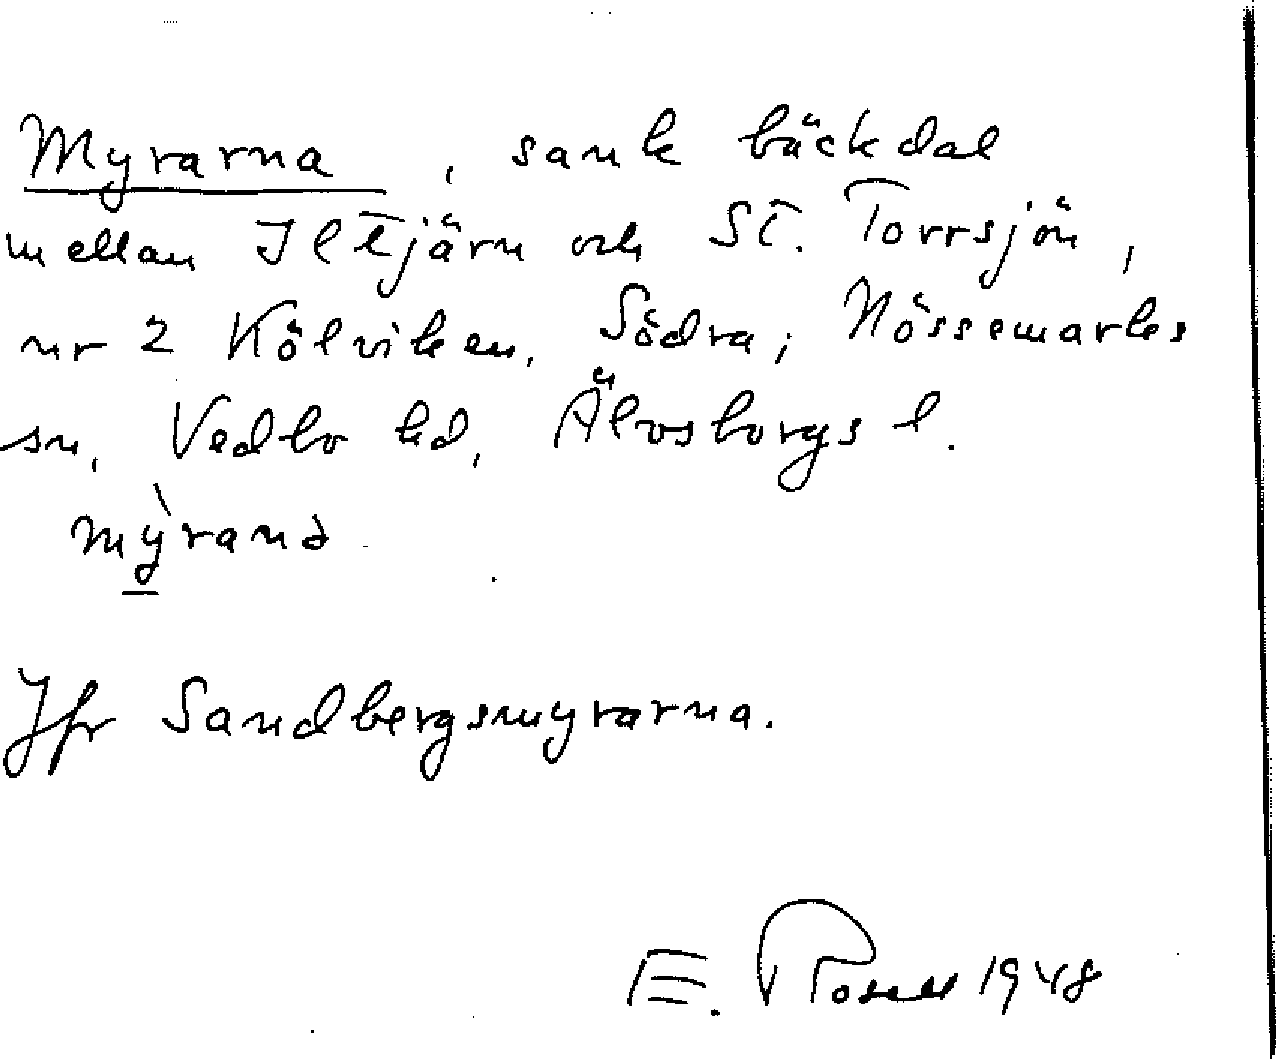 Myrarna, sank bäckdal
mellan Iltjärn och St. Torrsjön,
nr 2 Kölviken, Södra; Nössemarks
sn, Vedbo hd, Älvsborgs l.
mỳranə
Jfr Sandbergsmyrarna.
E. Rosell 1948